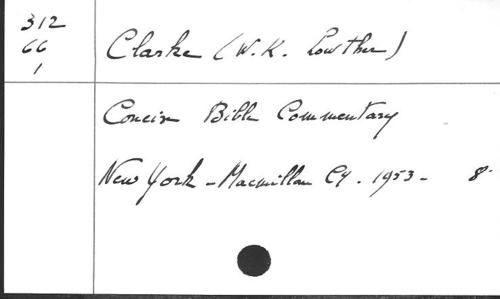 312
66
1
Clarke (W.K. Lowther)
Concise Bible Commentary
New York - Macmillan Cy. 1953 - 8°